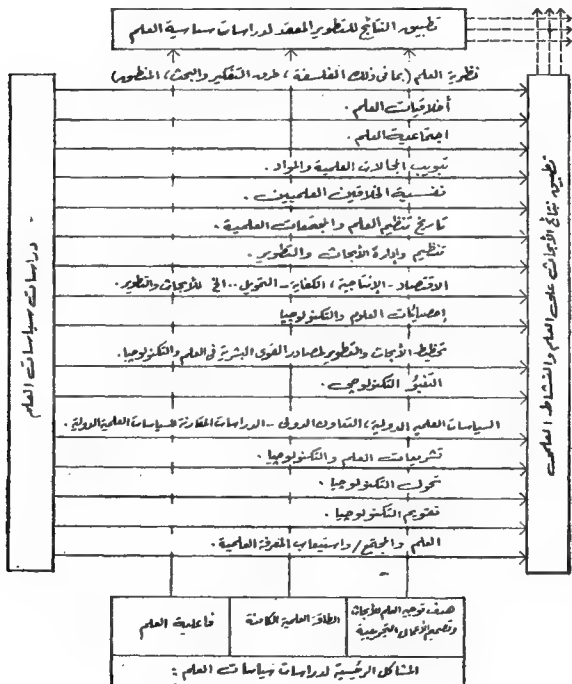 تطبيق النتائج للتطوير المعقد لدراسات سياسة العلم
نظرية العلم (بما فى ذلك الفلسفة ، طرق التفكير والبحث ، المنطق)
أخلاقيات العلم .
اجتماعية العلم .
تبويب المجالات العلمية والمواد .
نفسية الخلاقين العلميين .
تاريخ تنظيم العلم والمجتمعات العلمية .
تنظيم وإدارة الأبحاث والتطوير .
الاقتصاد - الإنتاجية ، الكفاية - التمويل .. الخ للأبحاث والتطوير .
إحصائيات العلوم والتكنولوجيا
تخطيط الأبحاث والتطوير لمصادر القوى البشرية فى العلم والتكنولوجيا .
التنبؤ التكنولوجى .
السياسات العلمية الدولية ، التعاون الدولى - الدراسات المقارنة للسياسات العلمية الدولية .
تشريعات العلم والتكنولوجيا .
تحول التكنولوجيا .
تقويم التكنولوجيا .
العلم والمجتمع / واستيعاب المعرفة العلمية .
دراسات سياسات العلم
تطبيق نتائج الأبحاث على العلم والنشاط العلمى
هدف توجيه العلم للأبحاث
وتصميم الأعمال التجريبية
الطاقة العلمية الكامنة
فاعلية العلم
المشاكل الرئيسية لدراسات سياسات العلم :